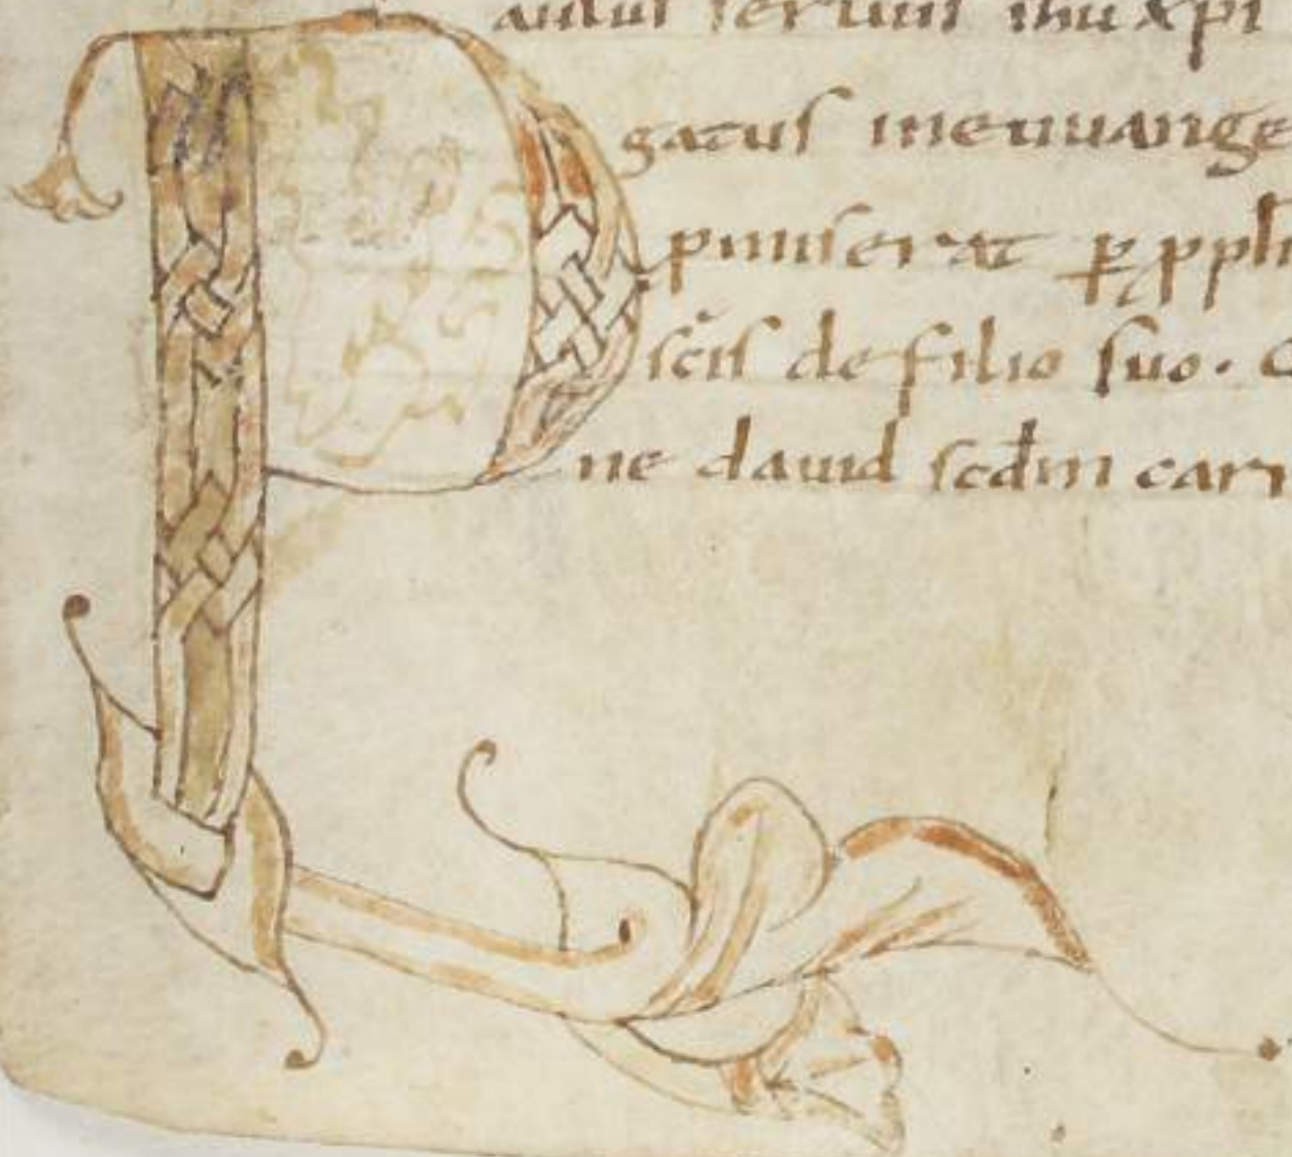 P
aulus seruus ihu xpi
gatus ineuuange
pmiserat p pph
scis de filio suo. 
ne dauid scdm carn